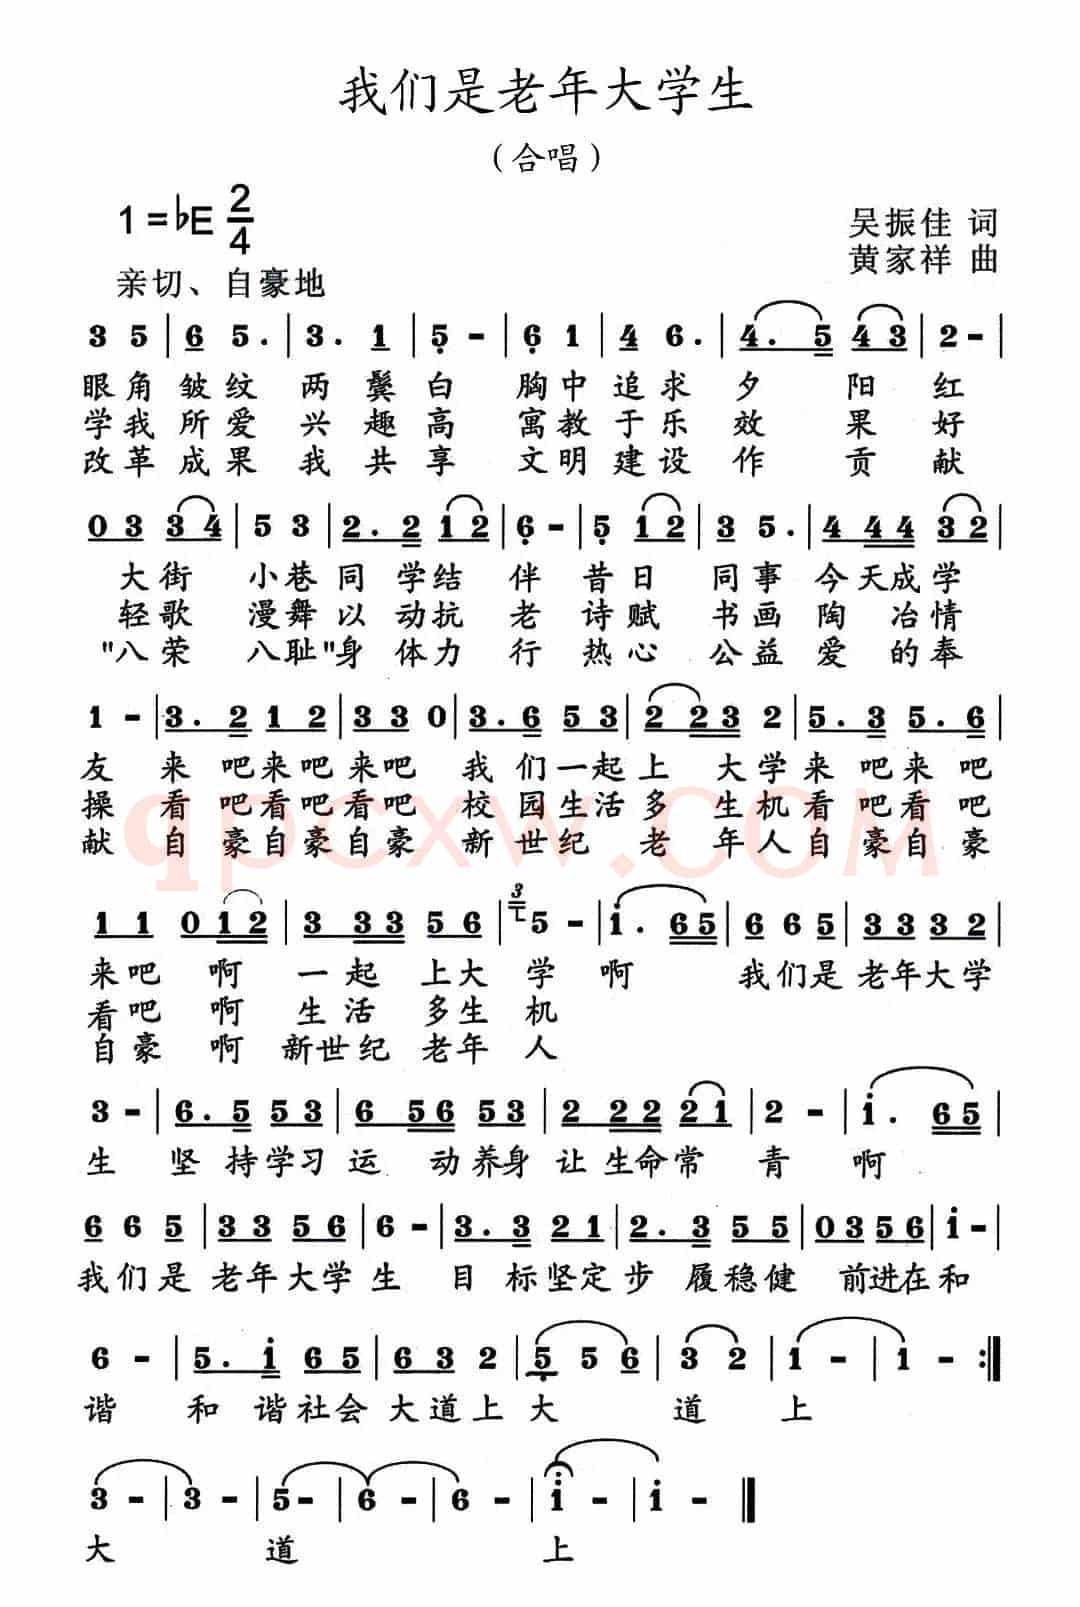 我们是老年大学生
（合唱）
1=♭E 2/4
吴振佳 词
黄家祥 曲
亲切、自豪地
3 5 | 6 5. | 3. 1 | 5 - | 6 1 | 4 6. | 4. 5 4 3 | 2 - |
眼角 皱纹 两鬓白 胸中追求夕 阳红
学我 所爱 兴趣高 寓教于乐效 果好
改革 成果 我共享 文明建设作 贡献
0 3 3 4 | 5 3 | 2. 2 1 2 | 6 - | 5 1 2 | 3 5. | 4 4 4 3 2 |
大街 小巷同 学结 伴 昔日 同事今天成学
轻歌 漫舞以 动抗 老 诗赋 书画陶 冶情
"八荣 八耻"身 体力 行 热心 公益爱 的奉
1 - | 3. 2 1 2 | 3 3 0 | 3. 6 5 3 | 2 2 3 2 | 5. 3 5. 6 |
友 来 吧来吧来吧 我们一起上 大学来吧来吧
操 看 吧看吧看吧 校园生活多 生机看吧看吧
献 自 豪自豪自豪 新世纪 老 年人自豪自豪
1 1 0 1 2 | 3 3 3 5 6 | 3 5 - | i. 6 5 | 6 6 5 | 3 3 3 2 |
来吧 啊 一起 上大 学 啊 我们是老年大学
看吧 啊 生活 多生 机
自豪 啊 新世纪 老年 人
3 - | 6. 5 5 3 | 6 5 6 5 3 | 2 2 2 2 1 | 2 - | i. 6 5 |
生 坚持学习运 动养身让生命常 青 啊
6 6 5 | 3 3 5 6 | 6 - | 3. 3 2 1 | 2. 3 5 5 | 0 3 5 6 | i - |
我们是 老年大学生 目标坚定步 履稳健 前进在和
6 - | 5. i 6 5 | 6 3 2 | 5 5 6 | 3 2 | 1 - | 1 - :|
谐 和谐社会大道上大 道 上
3 - | 3 - | 5 - | 6 - | 6 - | i - | i - ||
大 道 上
qpcxw.com